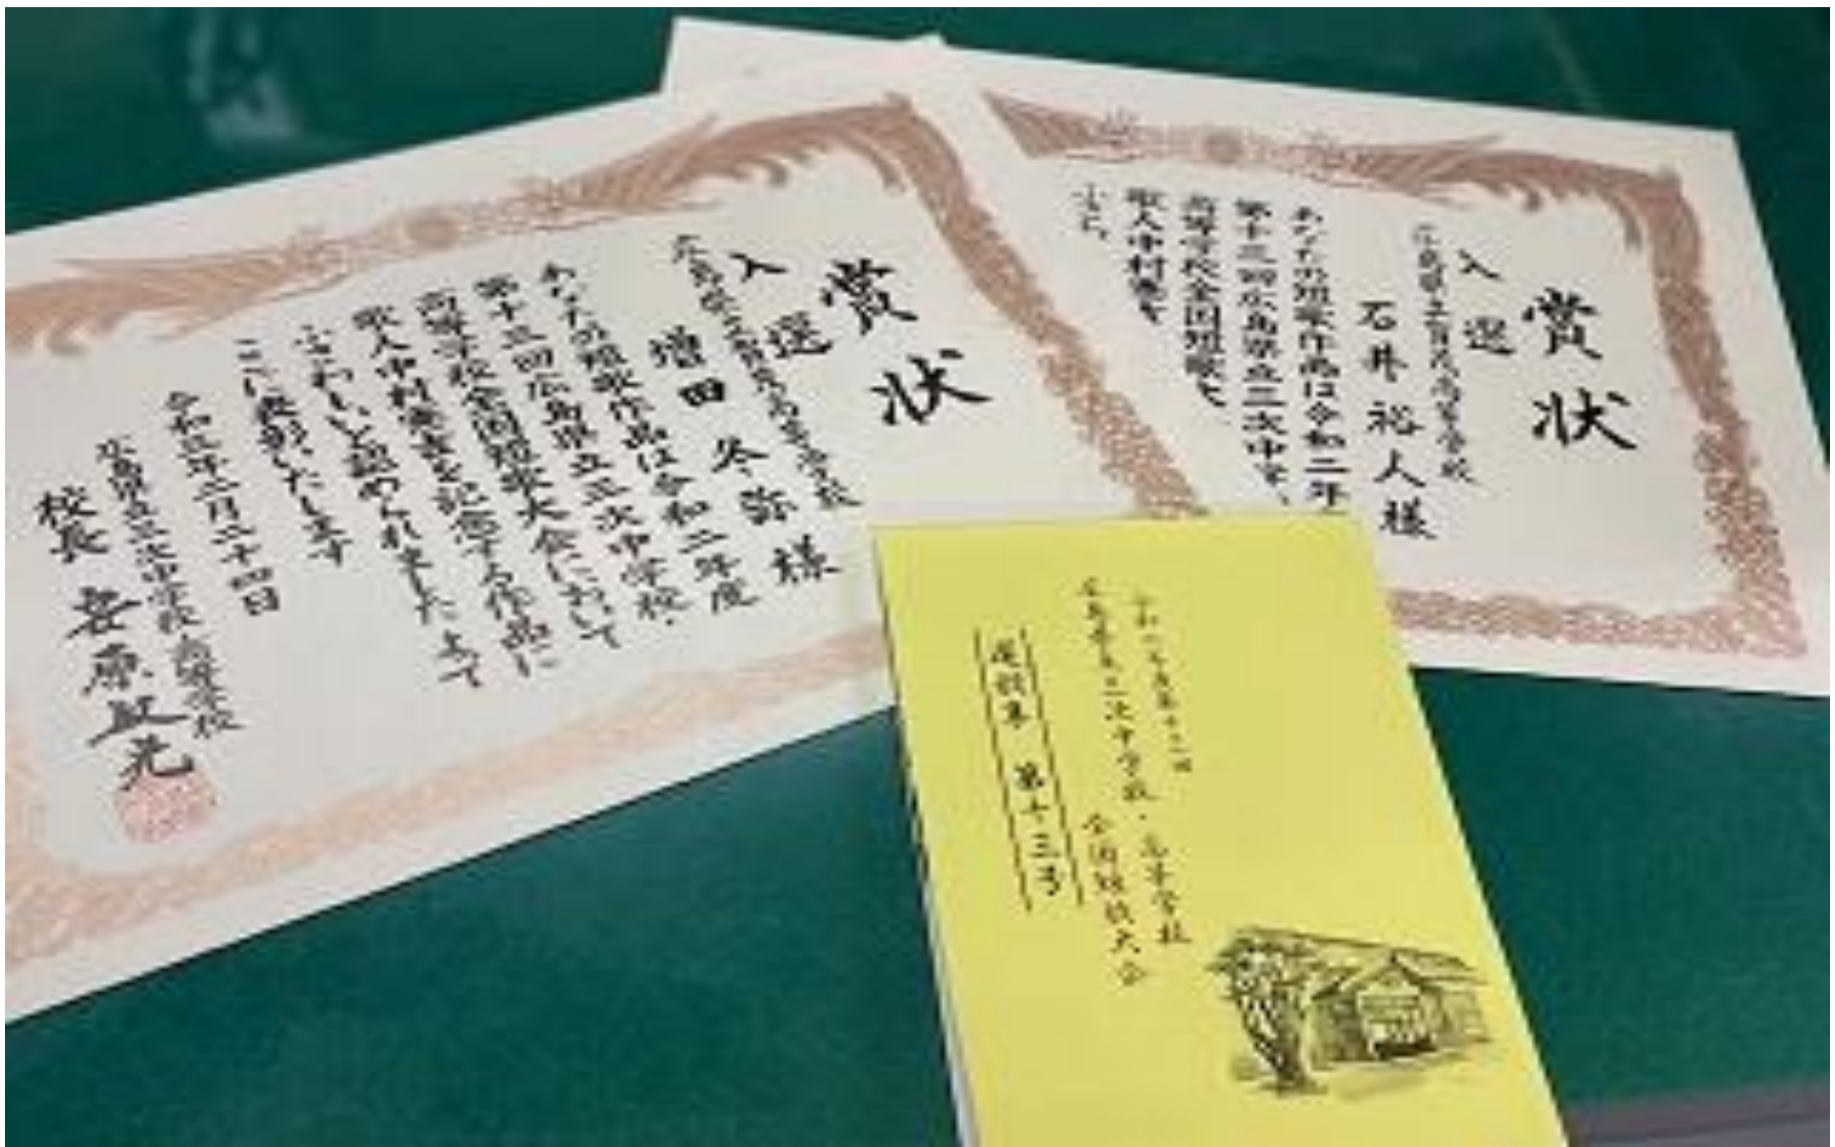 賞状
入選
広島県立賀茂高等学校
増田冬弥様
あなたの短歌作品は令和二年度
第十三回広島県立三次中学校・
高等学校全国短歌大会において
歌人中村憲吉を記念する作品に
ふさわしいと認められました よって
ここに表彰いたします
令和三年二月二十四日
広島県立三次中学校・高等学校
校長
賞状
入選
広島県立賀茂高等学校
石井裕人様
あなたの短歌作品は令和二年
第十三回広島県立三次中学
高等学校全国短歌大
歌人中村憲吉
ふさわ
令和二年度第十三回
広島県立三次中学校・高等学校
全国短歌大会
選歌集 第十三号